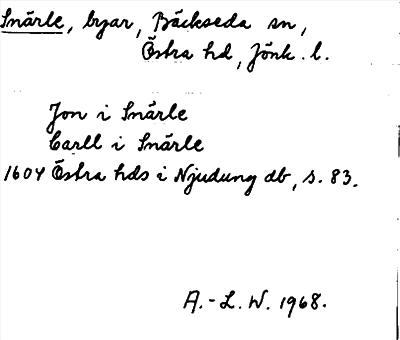 Snärle, byar, Bäckseda sn,
Östra hd, Jönk. l.
Jon i Snärle
Carll i Snärle
1604 Östra hds i Njudung db, s. 83.
A.-L. W. 1968.